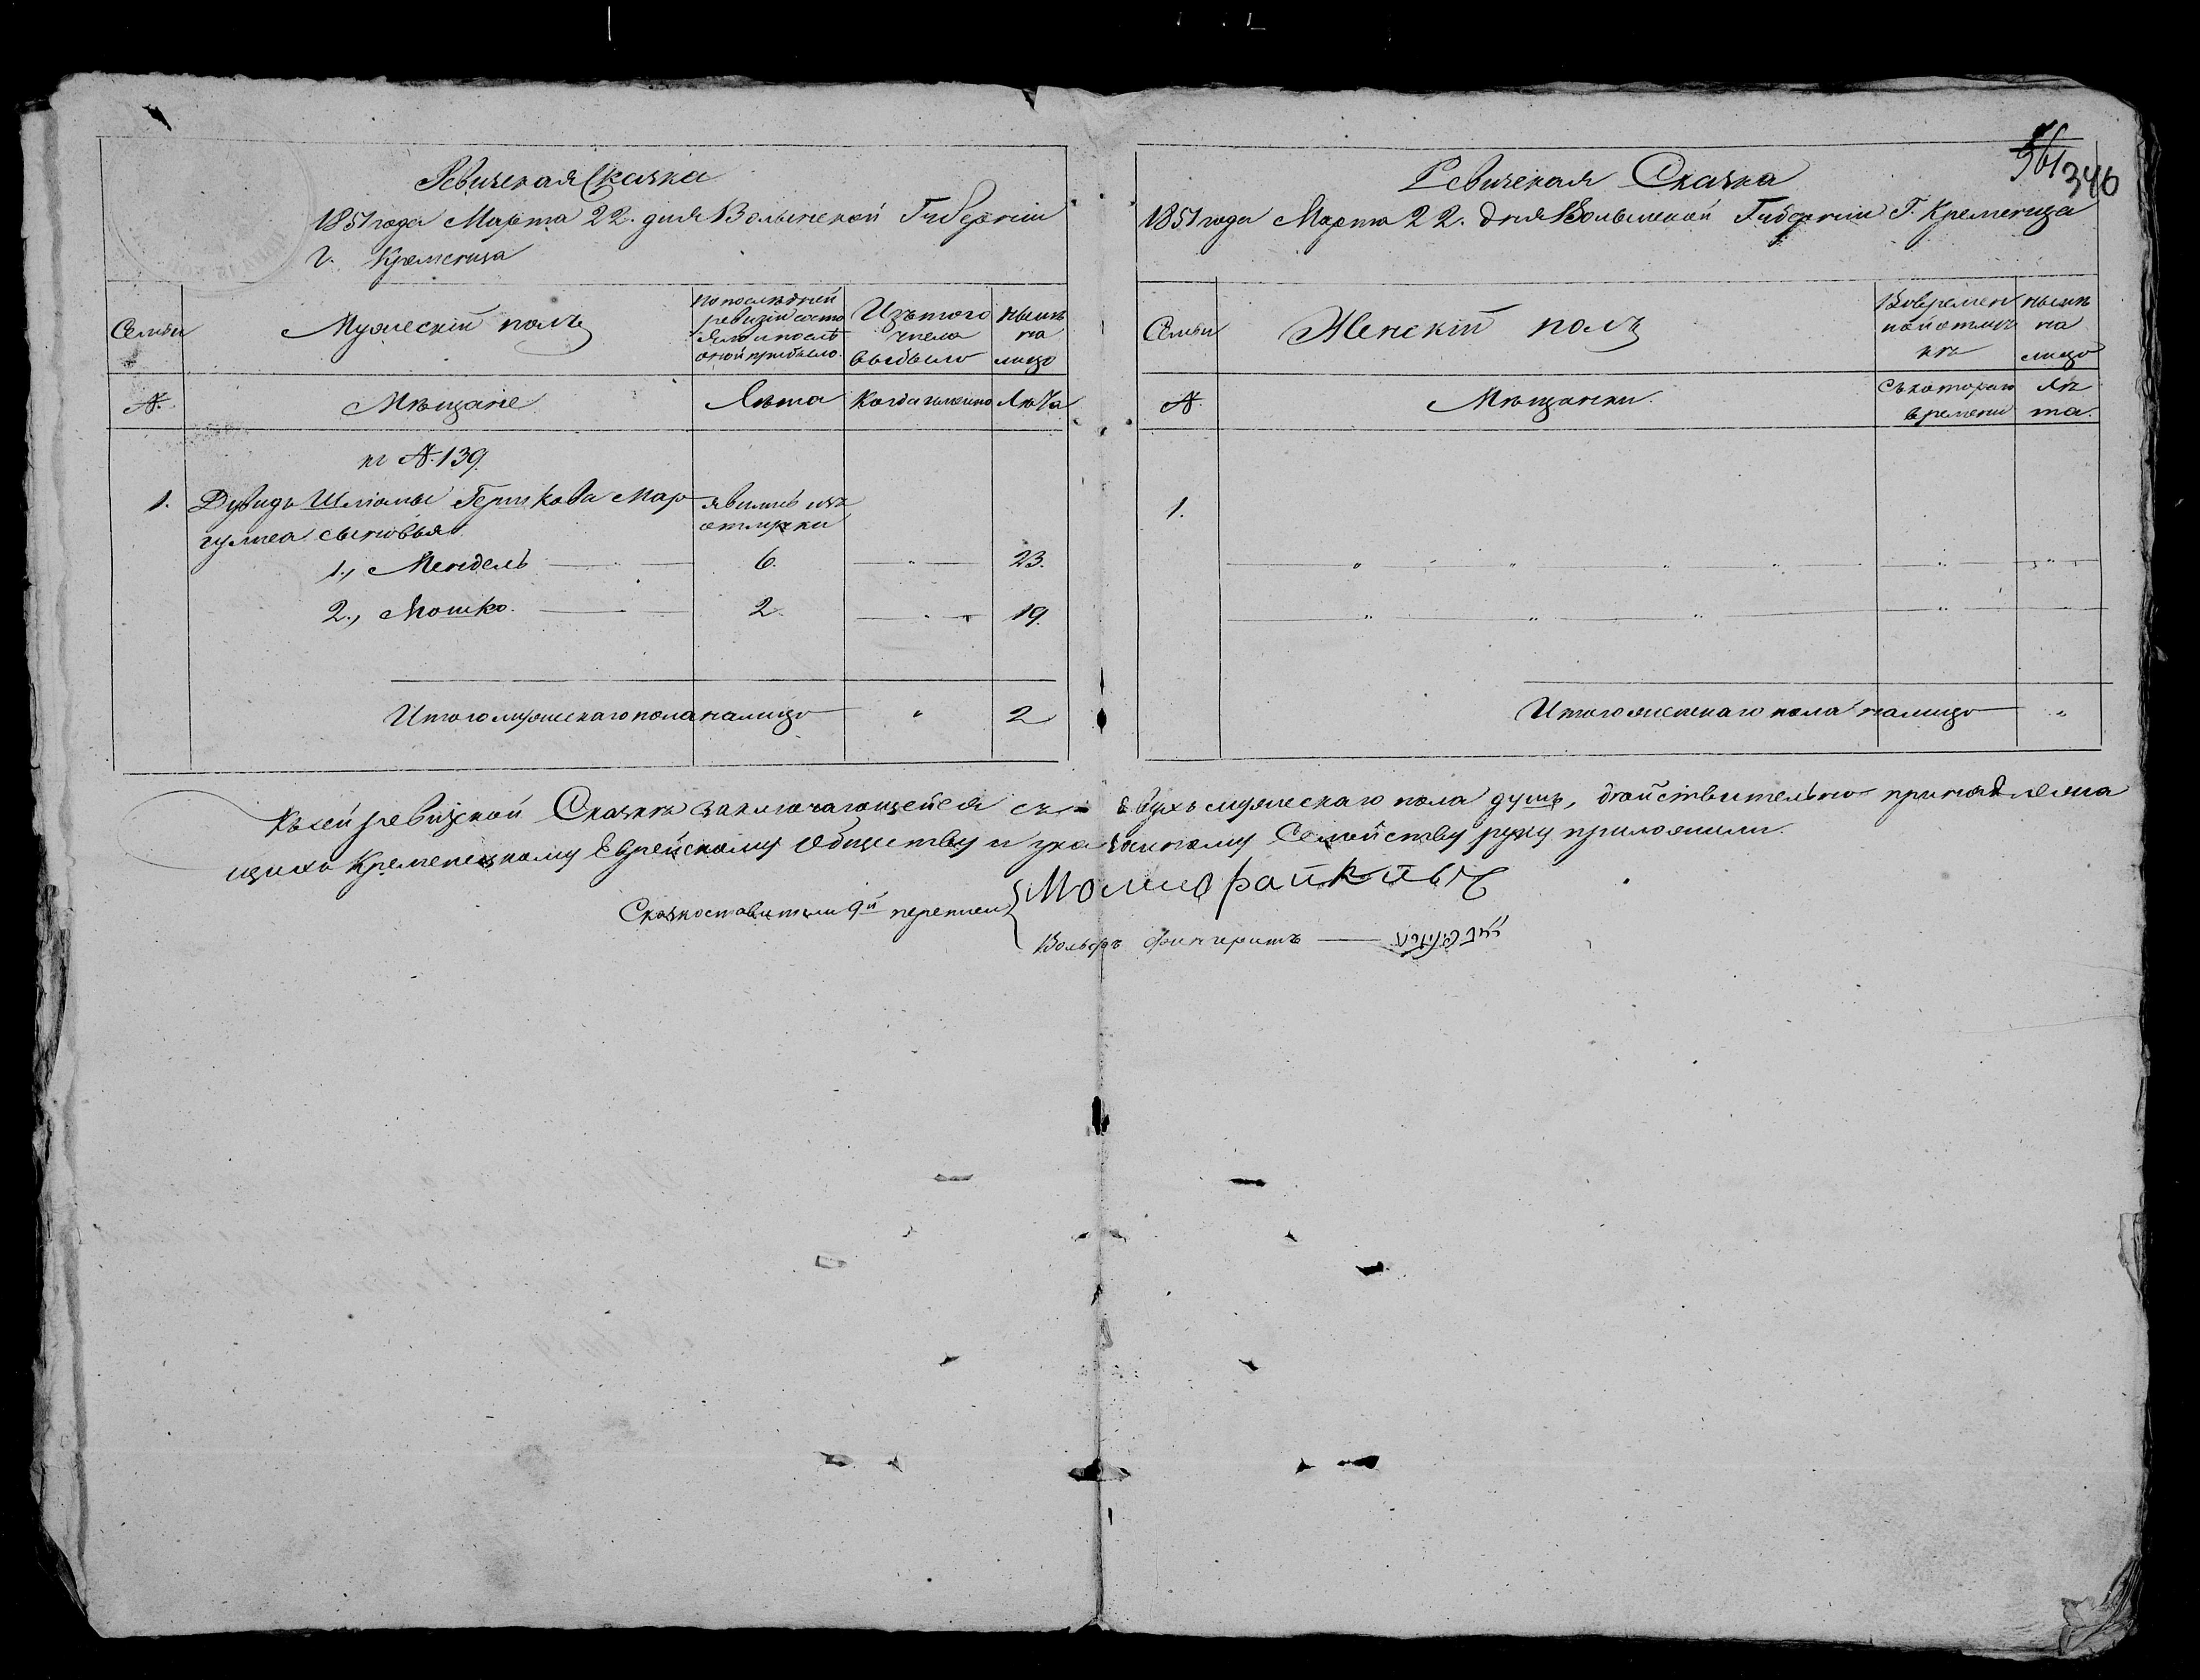 Ревизская Сказка
1851 года Марта 22. дня Волынской Губернии
г. Кременца
Семьи
Мужескій полъ
По послѣдней
ревизіи состо
яло и послѣ
оной прибыло.
Изъ того
числа
выбыло
Нынѣ
на
лицо
№.
Мѣщане
Лѣта
Когда именно
Лѣта
къ №. 139.
1. Дувидъ Шліомы Гершкова Мар
гулиса сыновья
явились изъ
отлучки
1., Мендель 6. " 23.
2., Мошко. 2. " 19.
Итого мужескаго пола налицо " 2
561
346
Ревизская Сказка
1851 года Марта 22. дня Волынской Губерніи Г. Кременца
Семьи
Женскій полъ
Во времен
ной отлуч
кѣ
Нынѣ
на
лицо
№.
Мѣщанки.
Съ котораго
времени
Лѣ
та.
1.
Итого женскаго пола налицо "
Къ сей ревизской Сказкѣ заключающейся съ двухъ мужескаго пола душъ, дѣйствительно принадлежа
щихъ Кременецкому Еврейскому Обществу и указанному Семейству руку приложили.
Сказкоставители 9й переписи
Вольфъ Фингеритъ